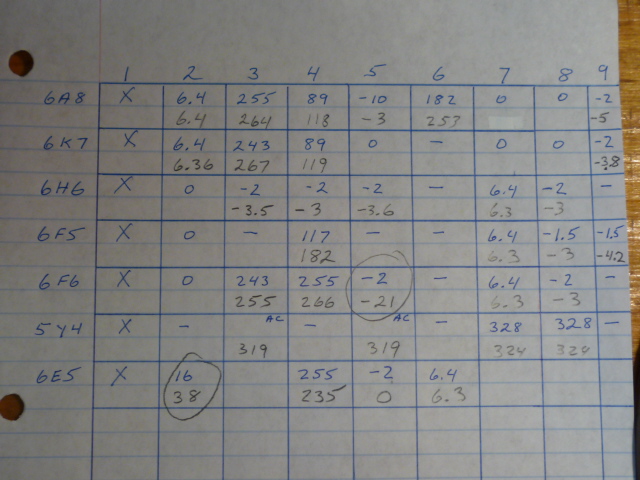 1 2 3 4 5 6 7 8 9
6A8 X 6.4 255 89 -10 182 0 0 -2
6.4 264 118 -3 253 -5
6K7 X 6.4 243 89 0 - 0 0 -2
6.36 267 119 -3.8
6H6 X 0 -2 -2 -2 - 6.4 -2 -
-3.5 -3 -3.6 6.3 -3
6F5 X 0 - 117 - 6.4 -1.5 -1.5
182 6.3 -3 -4.2
6F6 X 0 243 255 -2 - 6.4 -2 -
255 266 -21 6.3 -3
5Y4 X - AC - AC - 328 328 -
319 319 324 324
6E5 X 16 255 -2 6.4
38 235 0 6.3